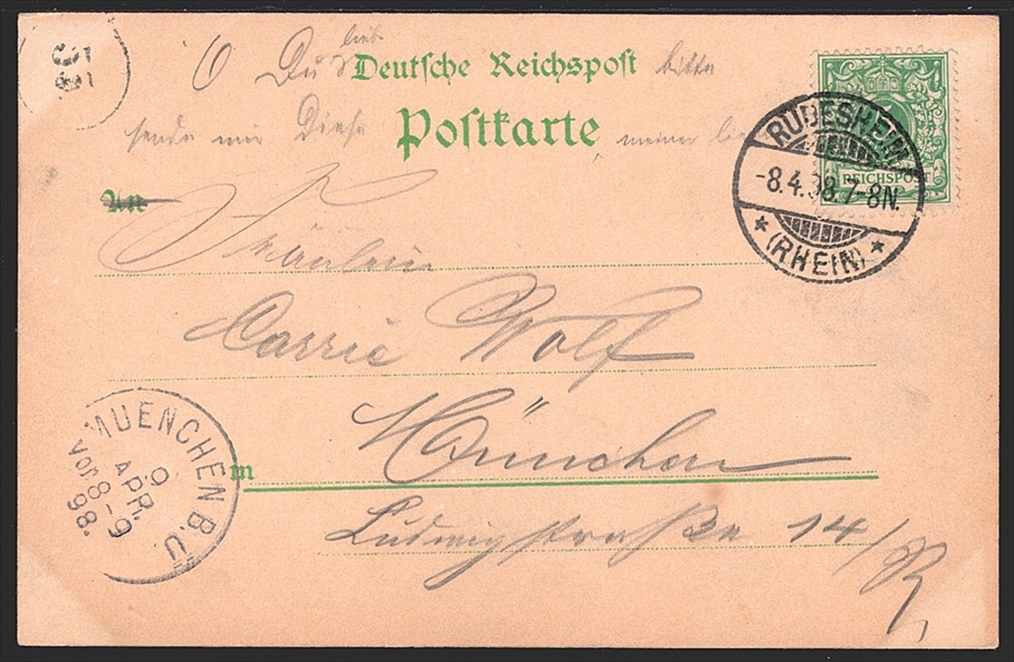 O Du liebe Deutsche Reichspost bitte
sende mir Diese Postkarte meiner
An
Fräulein
Carrie Wolf
in München
Ludwigstraße 14/R
RÜDESHEIM
-8.4.98.7-8N.
* (RHEIN) *
REICHSPOST
MUENCHEN B.U.
9.
APR.
VOR 8-9
98.